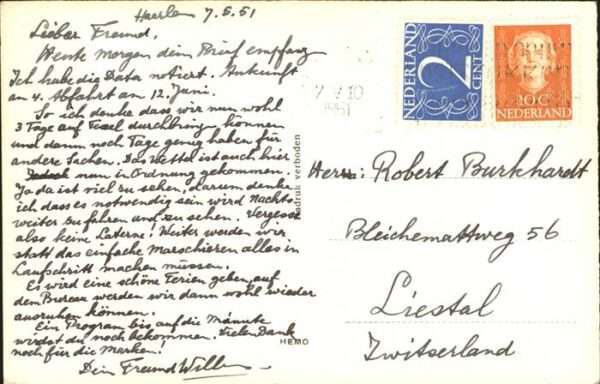 Haarlem 7.5.51
Lieber Freund,
Heute morgen dein Brief empfang
Ich habe die Data notiert. Ankunft
am 4. Abfahrt am 12. Juni.
So ich denke dass wir nun wohl
3 Tage auf Texel durchbringen können
und dann noch Tage genug haben für
andere Sachen. Das Wetter ist auch hier
nun in Ordnung gekommen.
Ja da ist viel zu sehen, darum denke
ich dass es notwendig sein wird Nachts
weiter zu fahren und zu sehen. Vergesse
also keine Laterne! Weiter werden wir
statt das einfache Marschieren alles in
Laufschritt machen müssen.
Es wird eine schöne Ferien geben, auf
dem Bureau werden wir dann wohl wieder
ausruhen können.
Ein Program bis auf die Minute
wirdst du noch bekommen. Vielen Dank
noch für die Marken!
Dein Freund Willem
druk verboden
HEMO
NEDERLAND
2
CENT
10 C
NEDERLAND
1951
Herrn: Robert Burkhardt
Bleichemattweg 56
Liestal
Zwitserland